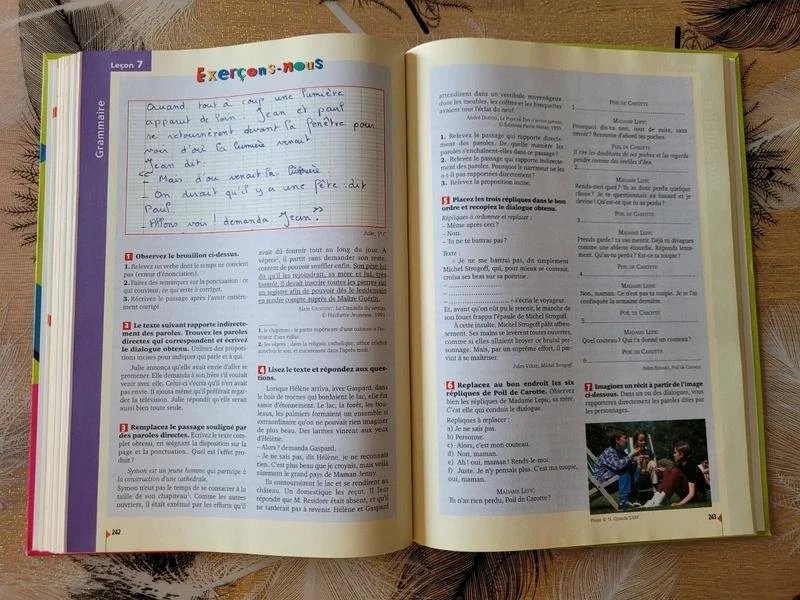 Leçon 7
Exerçons-nous
Grammaire
Quand tout à coup une lumière
apparut de loin. Jean et paul
se retournèrent devant la fenêtre pour
voir d'où la lumière venait
Jean dit:
« - Mais d'ou venait la lumière
- On dirait qu'il y a une fête : dit
Paul.
- Allons voir ! demanda Jean ? »
Julie, 5e C
1 Observez le brouillon ci-dessus.
1. Relevez un verbe dont le temps ne convient
pas (erreur d'énonciation).
2. Faites des remarques sur la ponctuation : ce
qui convient, ce qui reste à corriger.
3. Récrivez le passage après l'avoir entière-
ment corrigé.
2 Le texte suivant rapporte indirecte-
ment des paroles. Trouvez les paroles
directes qui correspondent et écrivez
le dialogue obtenu. Utilisez des proposi-
tions incises pour indiquer qui parle et à qui.
Julie annonça qu'elle avait envie d'aller se
promener. Elle demanda à son frère s'il voulait
venir avec elle. Celui-ci s'écria qu'il n'en avait
pas envie. Il ajouta même qu'il préférait regar-
der la télévision. Julie répondit qu'elle serait
aussi bien toute seule.
3 Remplacez le passage souligné par
des paroles directes. Écrivez le texte com-
plet obtenu, en soignant la disposition sur la
page et la ponctuation.. Quel est l'effet pro-
duit ?
Symon est un jeune homme qui participe à
la construction d'une cathédrale.
Symon n'eut pas le temps de se consacrer à la
taille de son chapiteau1. Comme les autres
ouvriers, il était exténué par les efforts qu'il
avait dû fournir tout au long du jour. À
vêpres2, il partit sans demander son reste,
content de pouvoir souffler enfin. Son père lui
dit qu'il les rejoindrait, sa mère et lui, très
bientôt. Il devait inscrire toutes les pierres sur
un registre afin de pouvoir dès le lendemain
en rendre compte auprès de Maître Guérin.
© Hachette Jeunesse, 1991.
1. le chapiteau : la partie supérieure d'une colonne à l'in-
térieur d'une église.
2. les vêpres : dans la religion catholique, office célébré
autrefois le soir, et maintenant dans l'après-midi.
4 Lisez le texte et répondez aux ques-
tions.
Lorsque Hélène arriva, avec Gaspard, dans
le bois de troènes qui bordaient le lac, elle fut
saisie d'étonnement. Le lac, la forêt, les bou-
leaux, les palmiers formaient un ensemble si
extraordinaire qu'on ne pouvait rien imaginer
de plus beau. Des larmes vinrent aux yeux
d'Hélène.
– Alors ? demanda Gaspard.
– Je ne sais pas, dit Hélène, je ne reconnais
rien. C'est plus beau que je croyais, mais voilà
sûrement le grand pays de Maman Jenny.
Ils contournèrent le lac et se rendirent au
château. Un domestique les reçut. Il leur
répondit que M. Residore était absent, et qu'il
ne tarderait pas à revenir. Hélène et Gaspard
242
attendirent dans un vestibule moyenâgeux
dont les meubles, les coffres et les banquettes
avaient tout l'éclat du neuf.
1. Relevez le passage qui rapporte directe-
ment des paroles. De quelle manière les
paroles s'enchaînent-elles dans ce passage ?
2. Relevez le passage qui rapporte indirecte-
ment des paroles. Pourquoi le narrateur ne les
a-t-il pas rapportées directement ?
3. Relevez la proposition incise.
5 Placez les trois répliques dans le bon
ordre et recopiez le dialogue obtenu.
Répliques à ordonner et replacer :
– Même après ceci ?
– Non.
– Tu ne te battras pas ?
Texte :
« Je ne me battrai pas, dit simplement
Michel Strogoff, qui, pour mieux se contenir,
croisa ses beas sur sa poitrine.
– ....................
– ....................
– .................... » s'écria le voyageur.
Et, avant qu'on eût pu le retenir, le manche de
son fouet frappa l'épaule de Michel Strogoff.
À cette insulte, Michel Strogoff pâlit affreu-
sement. Ses mains se levèrent toutes ouvertes,
comme si elles allaient broyer ce brutal per-
sonnage. Mais, par un suprême effort, il par-
vint à se maîtriser.
Jules Verne, Michel Strogoff.
6 Replacez au bon endroit les six
répliques de Poil de Carotte. Observez
bien les répliques de Madame Lepic, sa mère.
C'est elle qui conduit le dialogue.
Répliques à replacer :
a) Je ne sais pas.
b) Personne.
c) Alors, c'est mon couteau.
d) Non, maman.
e) Ah ! oui, maman ! Rends-le-moi.
f) Juste. Je n'y pensais plus. C'est ma toupie,
oui, maman.
Madame Lepic
Tu n'as rien perdu, Poil de Carotte ?
Poil de Carotte
1.
Madame Lepic
Pourquoi dis-tu non, tout de suite, sans
savoir ? Retourne d'abord tes poches.
Poil de Carotte
Il tire les doublures de ses poches et les regarde
pendre comme des oreilles d'âne.
2.
Madame Lepic
Rends-moi quoi ? Tu as donc perdu quelque
chose ? Je te questionnais au hasard et je
devine ! Qu'est-ce que tu as perdu ?
Poil de Carotte
3.
Madame Lepic
Prends garde ! tu vas mentir. Déjà tu divagues
comme une ablette étourdie. Réponds lente-
ment. Qu'as-tu perdu ? Est-ce ta toupie ?
Poil de Carotte
4.
Madame Lepic
Non, maman. Ce n'est pas ta toupie. Je te l'ai
confisquée la semaine dernière.
Poil de Carotte
5.
Madame Lepic
Quel couteau ? Qui t'a donné un couteau ?
Poil de Carotte
6.
Jules Renard, Poil de Carotte.
7 Imaginez un récit à partir de l'image
ci-dessous. Dans un ou des dialogues, vous
rapporterez directement les paroles dites par
les personnages.
243